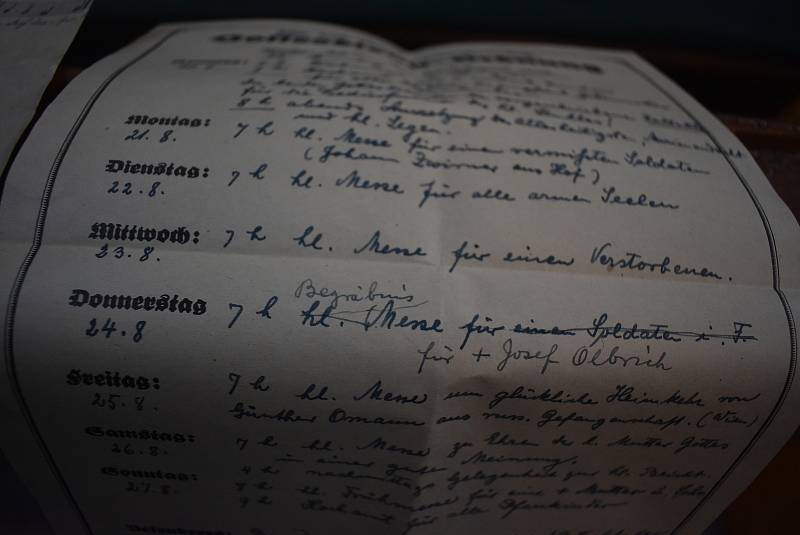 8 h abends Aussetzung des Allerheiligste,
und hl. Segen.
Montag: 7 h hl. Messe für einen vermißten Soldaten
21. 8. (Johann Zwirner aus Hof)
Dienstag: 7 h hl. Messe für alle armen Seelen
22. 8.
Mittwoch: 7 h hl. Messe für einen Verstorbenen.
23. 8.
Begräbnis
Donnerstag 7 h hl. Messe für einen Soldaten i. F.
24. 8 für + Josef Olbrich
Freitag: 7 h hl. Messe um glückliche Heimkehr von
25. 8. Günther Omann aus russ. Gefangenschaft. (Wien)
Samstag: 7 h hl. Messe zu Ehren der h. Mutter Gottes
26. 8. in einer guten Meinung.
4 h nachmittags Gelegenheit zur hl. Beicht.
Sonntag: 7 h hl. Frühmesse für eine + Mutter u. Sohn
27. 8. 9 h Hochamt für alle Pfarrkinder